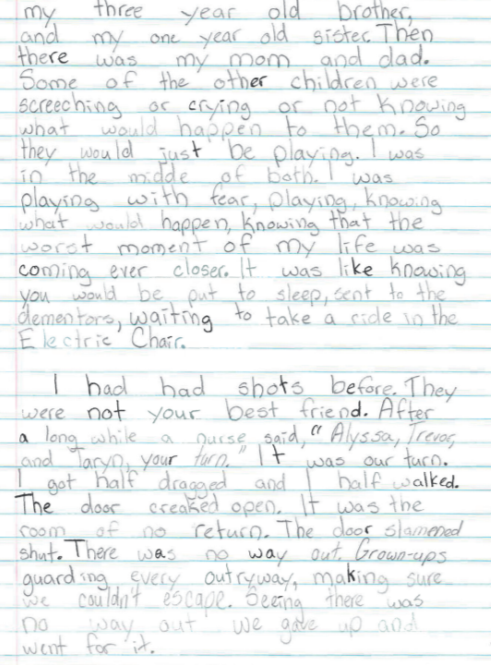 my three year old brother,
and my one year old sister. Then
there was my mom and dad.
Some of the other children were
screeching or crying or not knowing
what would happen to them. So
they would just be playing. I was
in the middle of both. I was
playing with fear, playing, knowing
what would happen, knowing that the
worst moment of my life was
coming ever closer. It was like knowing
you would be put to sleep, sent to the
dementors, waiting to take a ride in the
Electric Chair.
I had had shots before. They
were not your best friend. After
a long while a nurse said, "Alyssa, Trevor,
and Taryn, your turn." It was our turn.
I got half dragged and I half walked.
The door creaked open. It was the
room of no return. The door slamened
shut. There was no way out. Grown-ups
guarding every outryway, making sure
we couldn't escape. Seeing there was
no way out we gave up and
went for it.